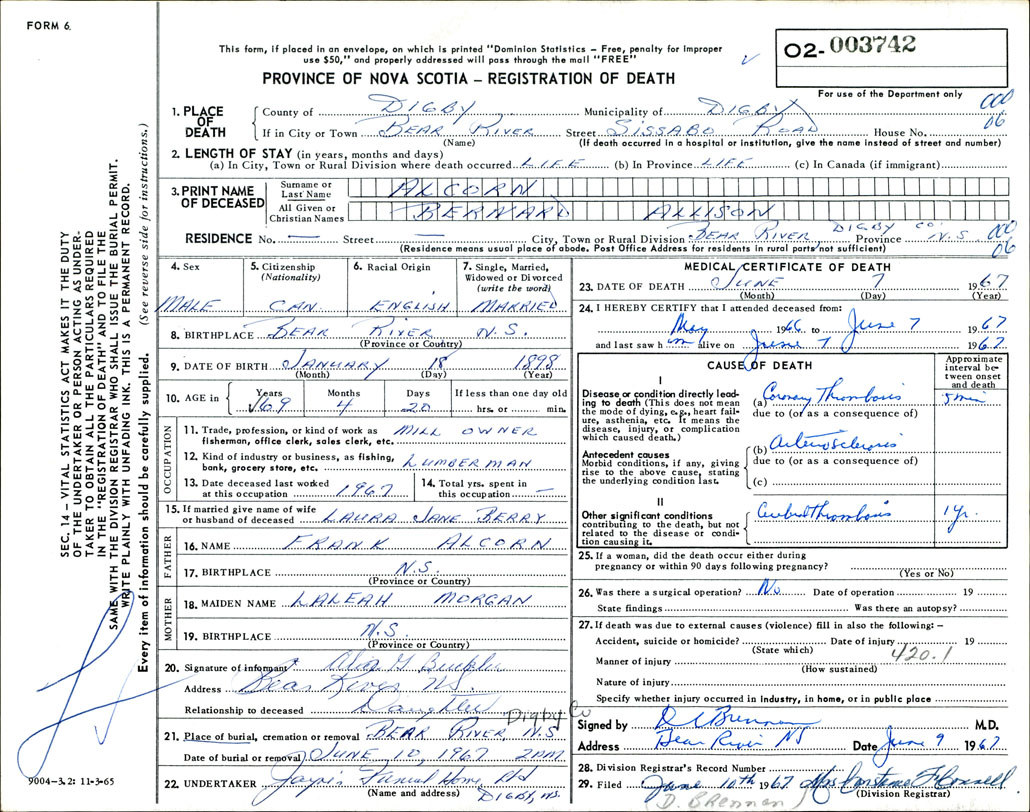 FORM 6.
This form, if placed in an envelope, on which is printed "Dominion Statistics – Free, penalty for improper
use $50," and properly addressed will pass through the mail "FREE"
02-003742
PROVINCE OF NOVA SCOTIA – REGISTRATION OF DEATH
For use of the Department only
000
06
1. PLACE OF DEATH
County of DIGBY Municipality of DIGBY
If in City or Town BEAR RIVER Street SISSABO ROAD House No.
(Name) (If death occurred in a hospital or institution, give the name instead of street and number)
2. LENGTH OF STAY (in years, months and days)
(a) In City, Town or Rural Division where death occurred LIFE (b) In Province LIFE (c) In Canada (if immigrant)
3. PRINT NAME OF DECEASED
Surname or Last Name ALCORN
All Given or Christian Names BERNARD ALLISON
RESIDENCE No. — Street — City, Town or Rural Division BEAR RIVER, DIGBY CO Province N.S.
000
06
(Residence means usual place of abode. Post Office Address for residents in rural parts not sufficient)
4. Sex
MALE
5. Citizenship
(Nationality)
CAN
6. Racial Origin
ENGLISH
7. Single, Married,
Widowed or Divorced
(write the word)
MARRIED
8. BIRTHPLACE BEAR RIVER N.S.
(Province or Country)
9. DATE OF BIRTH JANUARY 18 1898
(Month) (Day) (Year)
10. AGE in
Years Months Days If less than one day old
69 4 20 hrs. or min.
OCCUPATION
11. Trade, profession, or kind of work as MILL OWNER
fisherman, office clerk, sales clerk, etc.
12. Kind of industry or business, as fishing, LUMBERMAN
bank, grocery store, etc.
13. Date deceased last worked
at this occupation 1967
14. Total yrs. spent in
this occupation —
15. If married give name of wife
or husband of deceased LAURA JANE BERRY
FATHER
16. NAME FRANK ALCORN
17. BIRTHPLACE N.S.
(Province or Country)
MOTHER
18. MAIDEN NAME LALEAH MORGAN
19. BIRTHPLACE N.S.
(Province or Country)
20. Signature of informant
Address Bear River N.S.
Relationship to deceased Daughter
Digby Co
21. Place of burial, cremation or removal BEAR RIVER N.S
Date of burial or removal JUNE 10, 1967 2PM
22. UNDERTAKER Funeral Home Ltd
(Name and address) DIGBY, N.S.
9004-3.2: 11-3-65
MEDICAL CERTIFICATE OF DEATH
23. DATE OF DEATH JUNE 7 1967
(Month) (Day) (Year)
24. I HEREBY CERTIFY that I attended deceased from:
May 1966 to June 7 1967
and last saw h im alive on June 7 1967
CAUSE OF DEATH
Approximate
interval be-
tween onset
and death
I
Disease or condition directly lead-
ing to death (This does not mean
the mode of dying, e.g., heart fail-
ure, asthenia, etc. It means the
disease, injury, or complication
which caused death.)
(a) Coronary Thrombosis 5 min
due to (or as a consequence of)
Antecedent causes
Morbid conditions, if any, giving
rise to the above cause, stating
the underlying condition last.
(b) Arteriosclerosis
due to (or as a consequence of)
(c)
II
Other significant conditions
contributing to the death, but not
related to the disease or condi-
tion causing it.
Cerebral Thrombosis 1 yr.
25. If a woman, did the death occur either during
pregnancy or within 90 days following pregnancy?
(Yes or No)
26. Was there a surgical operation? No. Date of operation 19
State findings Was there an autopsy?
27. If death was due to external causes (violence) fill in also the following: –
Accident, suicide or homicide? Date of injury 19
(State which)
420.1
Manner of injury
(How sustained)
Nature of injury
Specify whether injury occurred in industry, in home, or in public place
Signed by Brennan M.D.
Address Bear River NS Date June 9 1967
28. Division Registrar's Record Number
29. Filed June 10th 1967 Mrs
(Division Registrar)
D. Brennan
SEC. 14 – VITAL STATISTICS ACT MAKES IT THE DUTY
OF THE UNDERTAKER OR PERSON ACTING AS UNDER-
TAKER TO OBTAIN ALL THE PARTICULARS REQUIRED
IN THE "REGISTRATION OF DEATH" AND TO FILE THE
SAME WITH THE DIVISION REGISTRAR WHO SHALL ISSUE THE BURIAL PERMIT.
WRITE PLAINLY WITH UNFADING INK. THIS IS A PERMANENT RECORD.
Every item of information should be carefully supplied. (See reverse side for instructions.)